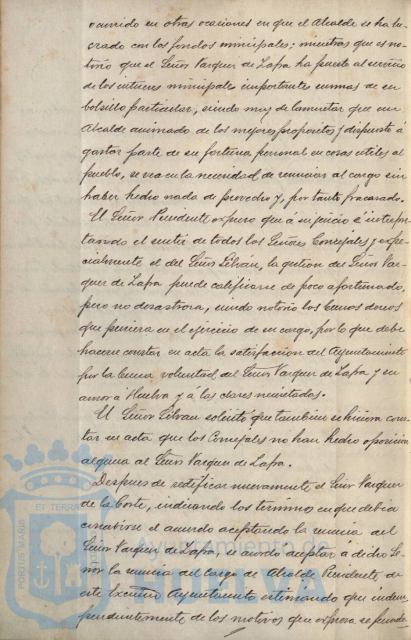 ocurrido en otras ocasiones en que el Alcalde se ha lu-
crado con los fondos municipales; mientras que es no-
torio que el Señor Vazquez de Zapa ha puesto al servicio
de los intereses municipales importantes sumas de su
bolsillo particular, siendo muy de lamentar que un
Alcalde animado de los mejores propositos y dispuesto á
gastar parte de su fortuna personal en cosas utiles al
pueblo, se vea en la necesidad de renunciar al cargo sin
haber hecho nada de provecho y, por tanto fracasado.
El Señor Presidente expuso que á su juicio é interpre-
tando el sentir de todos los Señores Concejales y espe-
cialmente el del Señor Silvan, la gestion del Señor Vaz-
quez de Zapa puede calificarse de poco afortunada,
pero no desastrosa, siendo notorio los buenos deseos
que pusiera en el ejercicio de su cargo, por lo que debe
hacerse constar en acta la satisfaccion del Ayuntamiento
por la buena voluntad del Señor Vazquez de Zapa y su
amor á Huelva y á las clases necesitadas.
El Señor Silvan solicitó que tambien se hiciera cons-
tar en acta que los Concejales no han hecho oposicion
alguna al Señor Vazquez de Zapa.
Despues de rectificar nuevamente el Señor Vazquez
de la Corte, indicando los terminos en que debia
concebirse el acuerdo aceptando la renuncia del
Señor Vazquez de Zapa, se acordo aceptar á dicho Se-
ñor la renuncia del cargo de Alcalde Presidente de
este Excmo Ayuntamiento estimando que indepen-
pendientemente de los motivos que expresa se funda
PORTUS MARIS ET TERRAE
Ayuntamiento de
HUELVA